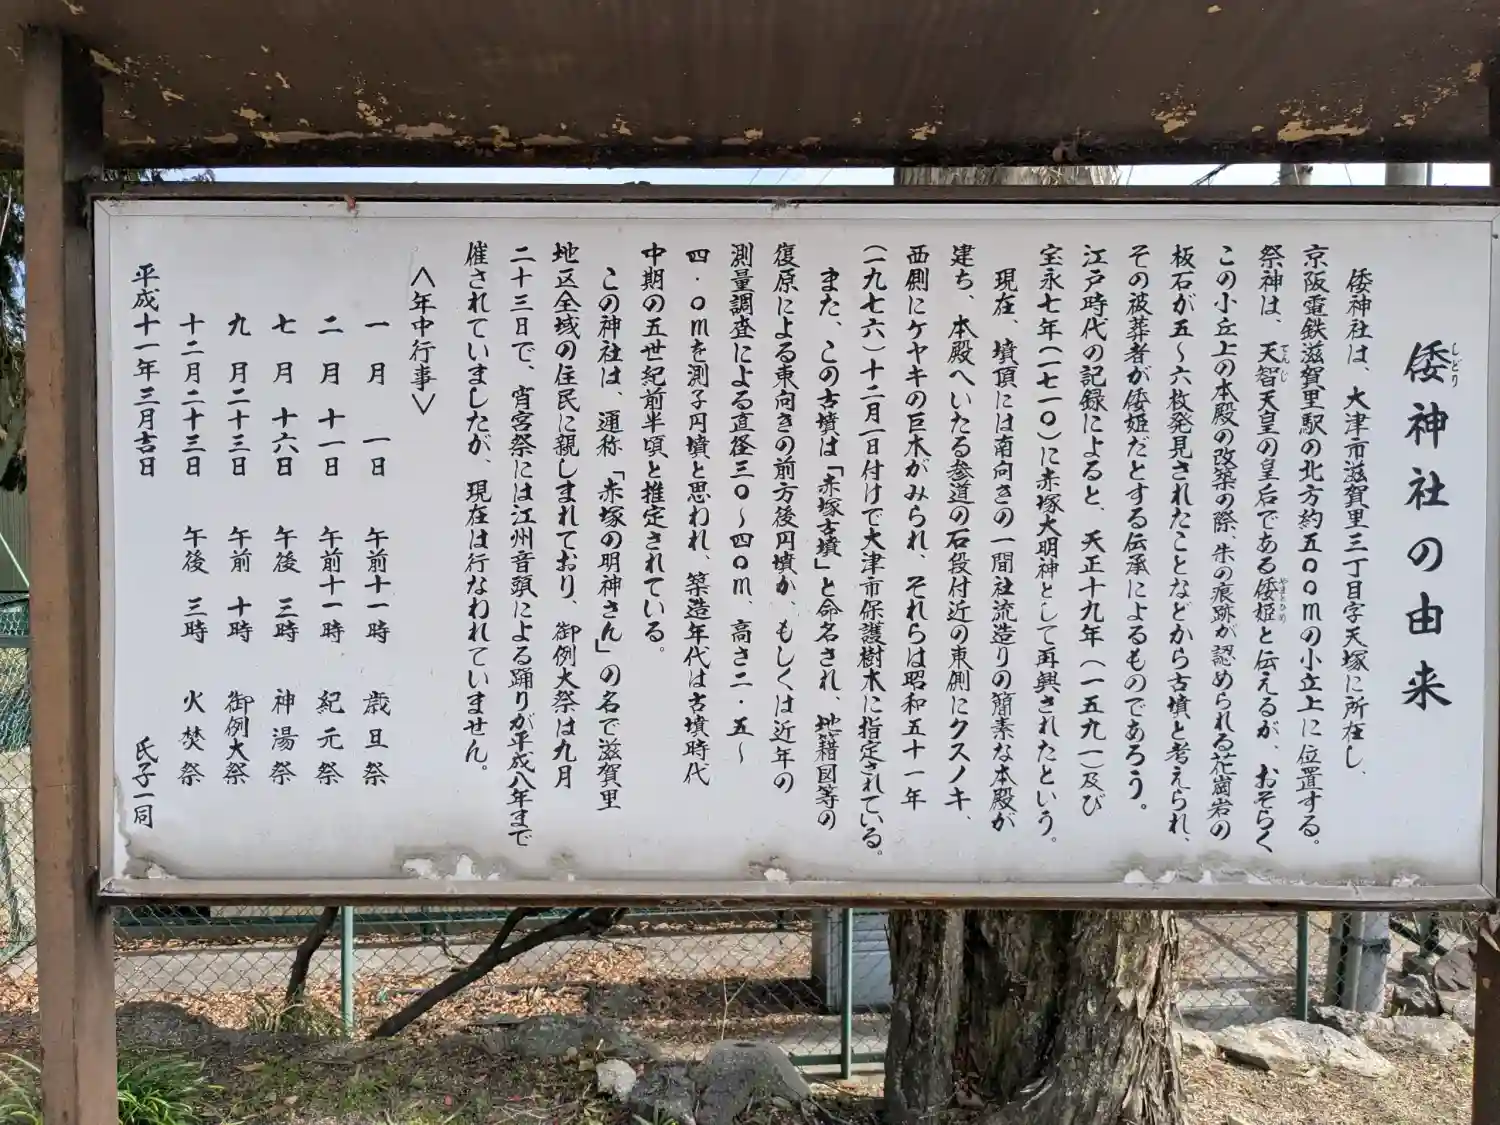 倭神社の由来
しどり
倭神社は、大津市滋賀里三丁目字天塚に所在し、
京阪電鉄滋賀里駅の北方約五〇〇mの小立上に位置する。
祭神は、天智天皇の皇后である倭姫と伝えるが、おそらく
てんじ
やまとひめ
この小丘上の本殿の改築の際、朱の痕跡が認められる花崗岩の
板石が五〜六枚発見されたことなどから古墳と考えられ、
その被葬者が倭姫だとする伝承によるものであろう。
江戸時代の記録によると、天正十九年(一五九一)及び
宝永七年(一七一〇)に赤塚大明神として再興されたという。
現在、墳頂には南向きの一間社流造りの簡素な本殿が
建ち、本殿へいたる参道の石段付近の東側にクスノキ、
西側にケヤキの巨木がみられ、それらは昭和五十一年
(一九七六)十二月一日付けで大津市保護樹木に指定されている。
また、この古墳は「赤塚古墳」と命名され、地籍図等の
復原による東向きの前方後円墳か、もしくは近年の
測量調査による直径三〇〜四〇m、高さ二・五〜
四・〇mを測る円墳と思われ、築造年代は古墳時代
中期の五世紀前半頃と推定されている。
この神社は、通称「赤塚の明神さん」の名で滋賀里
地区全域の住民に親しまれており、御例大祭は九月
二十三日で、宵宮祭には江州音頭による踊りが平成八年まで
催されていましたが、現在は行なわれていません。
〈年中行事〉
一月 一日 午前十一時 歳旦祭
二月 十一日 午前十一時 紀元祭
七月 十六日 午後 三時 神湯祭
九月二十三日 午前 十時 御例大祭
十二月二十三日 午後 三時 火焚祭
平成十一年三月吉日 氏子一同